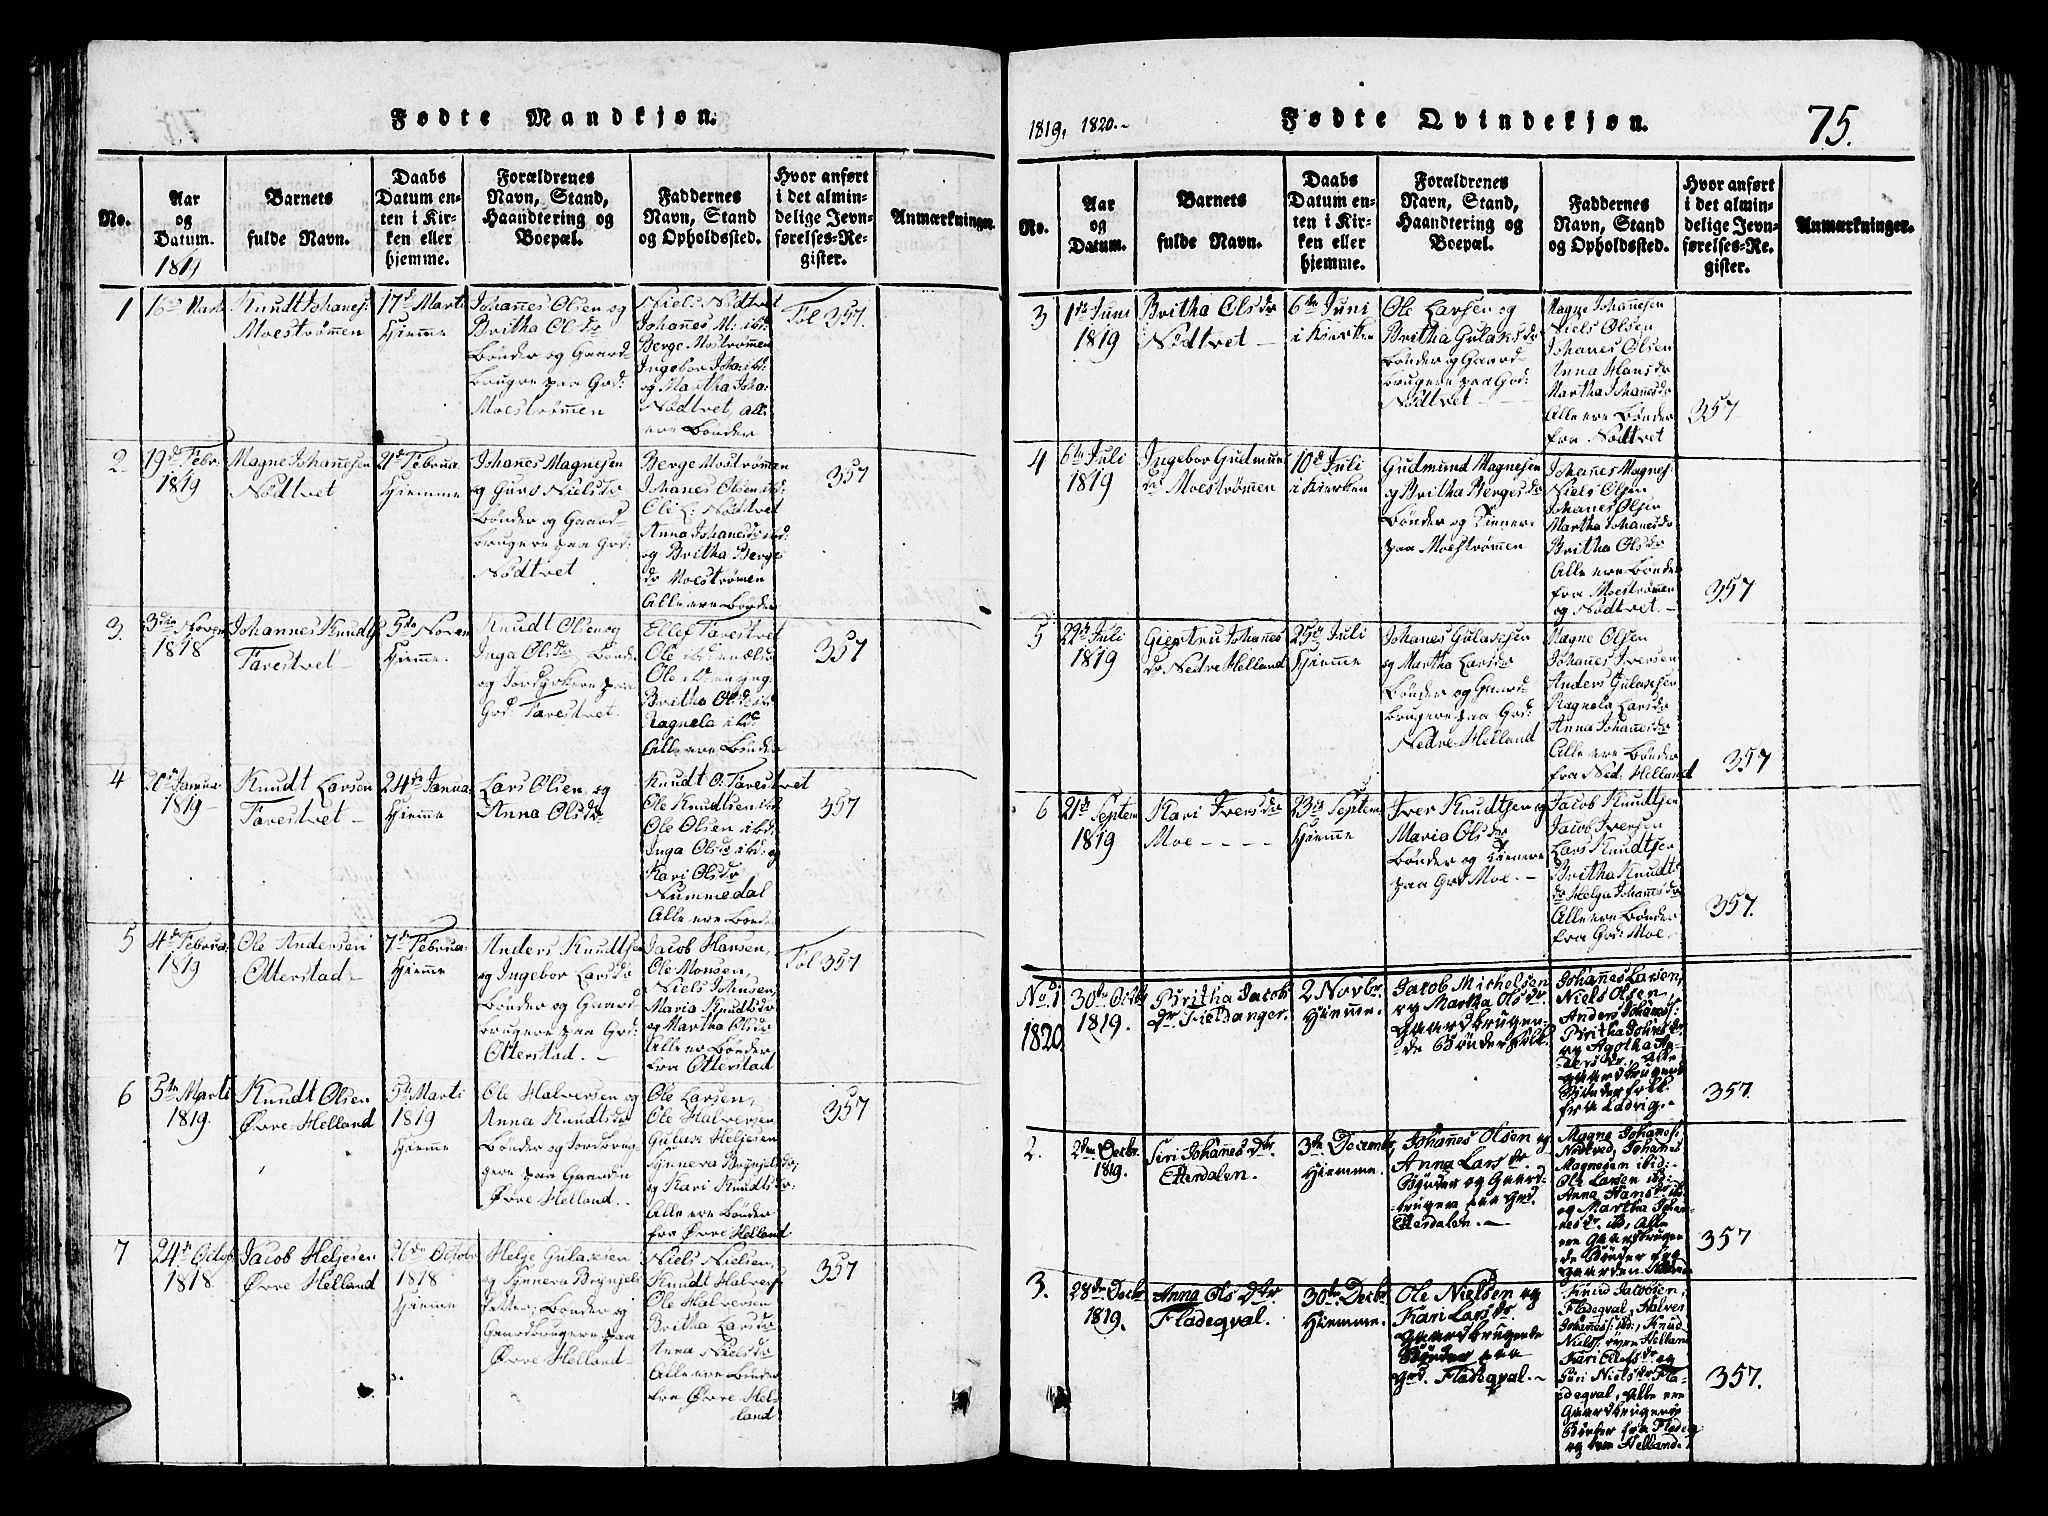 Fødte Mandkjøn.
No.
Aar
og
Datum.
1819
Barnets
fulde Navn.
Daabs
Datum en-
ten i Kir-
ken eller
hjemme.
Forældrenes
Navn, Stand,
Haandtering og
Boepæl.
Faddernes
Navn, Stand
og Opholdssted.
Hvor anført
i det almin-
delige Jevn-
førelses-Re-
gister.
Anmærkninger.
1
Knudt Johanes:
Moestrømmen
17d Marti
Hiemme
Johañes Olsen og
Britha Ols dr
Bønder og Gaard-
brugere paa Grd:
Moestrømen
Niels Nødtvet
Johañes M: ibd:
Berge Mostrømen
Ingebor Joha: ibd:
og Martha Joha:
Nødtvet, alle
ere Bønder
Fol 357.
2
19de Febr:
1819
Magne Johañesen
Nødtvet
21de Februa:
Hiemme
Johañes Magnesen
og Guro Niels dr
Bønder og Gaard-
brugere paa Grd:
Nødtvet
Berge Mostrømen
Johanes Olsen ibd:
Ole L: Nødtvet
Anna Johanes dr ibd:
og Britha Berges
dr Moestrømen
Alle ere Bønder
357
3.
3die Noven
1818
Johannes Knudts:
Farestvet
5te Noven
Hiemme.
Knudt Olsen og
Inga Ols dr Bønder
og Jordyrkere paa
Grd: Farestvet.
Ellef Farestvet
Ole ibd:
Ole ibd:
Britha Ols: ibd
Ragnela ibd:
Alle ere Bønder
357
4
20de Janua
1819
Knudt Larsen
Farestvet
24de Janua:
Hiemme
Lars Olsen og
Anna Ols dr
Knudt O: Farestvet
Ole Knudtsen ibd
Ole Olsen ibd:
Inga Ols dr ibd: og
Kari Ols dr
Nummedal
Alle ere Bønder
357
5
4de Februa:
1819
Ole Andersen
Otterstad
7de Februa:
Hiemme
Anders Knudtsen
og Ingebor Lars dr
Bønder og Gaard
brugere paa Grd:
Otterstad.
Jacob Hansen,
Ole Monsen,
Niels Johnsen,
Maria Knudts dr
og Martha Ols dr
Alle er Bønder
fra Otterstad
Fol 357
6
5te Marti
1819.
Knudt Olsen
Øvre Helland
5te Marti
1819
Hiemme
Ole Halversen og
Anna Knudts dr
Bønder og Jordbru-
gere paa Gaarden
Øvre Helland.
Ole Larsen,
Ole Halversen
Gulave Heljesen
Synneva Brynjels dr;
og Kari Knudts dr:
Alle ere Bønder
fra Øvre Helland
357
7
24de Octob
1818.
Jacob Heljesen
Øvre Helland
26de October
1818
Hiemme
Helje Gulaxsen
og Synneva Brynjels
datter, Bønder og
Gaardbrugere paa
Øvre Helland
Niels Nielsen,
Knudt Halvers:
Ole Halversen
Britha Lars dr
Anna Niels dr
Alle ere Bønder
fra Øvre Hel-
land
357
1819, 1820.
Fødte Qvindekjøn.
75.
No.
Aar
og
Datum.
Barnets
fulde Navn.
Daabs
Datum en-
ten i Kir-
ken eller
hjemme.
Forældrenes
Navn, Stand,
Haandtering og
Boepæl.
Faddernes
Navn, Stand
og Opholdssted.
Hvor anført
i det almin-
delige Jevn-
førelses-Re-
gister.
Anmærkninger.
3
1ste Juni
1819
Britha Ols dr
Nødtvet
6te Juni
i Kierken
Ole Larsen og
Britha Gulaks dr
Bønder og Gaard-
brugere paa Grd:
Nødtvet
Magne Johañesen
Niels Olsen
Johanes Olsen
Anna Hans dr
Martha Johanes dr
Alle ere Bønder
fra Nødtvet
357
4
6te Juli
1819
Ingebor Gudmun
dr Moestrømen
10de Juli
i Kierken
Gudmund Magnesen
og Britha Berges dr
Bønder og Tienere
paa Moestrømen
Johañes Magnes:
Niels Olsen
Johanes Olsen
Martha Johanes dr
Britha Ols dr
Alle ere Bønder
fra Moestrømen
og Nødtvet.
357
5
22de Juli
1819
Giertru Johañes
dr Nedre Helland
25de Juli
Hiemme
Johanes Gulaxsen
og Martha Lars dr
Bønder og Gaard
brugere paa Grd:
Nedre Helland
Magne Olsen
Johanes Iversen
Anders Gulaxsen
Ragnela Lars dr
Anna Johanes dr
Alle ere Bønder
fra Ned: Helland
357
6
21de Septem
1819
Kari Ivers dr
Moe
23de Septem
Hiemme
Iver Knudtsen og
Maria Ols dr
Bønder og Tienere
paa Grd Moe.
Jacob Knudtsen
Jacob Iversen
Lars Knudtsen
Britha Knudts
dr Helga Johanes dr
Alle ere Bønder
fra Grd: Moe
357.
No 1
1820.
30te Octbr
1819.
Britha Jacobs
dr Fieldanger.
2 Novbr.
Hiemme.
Jacob Michelsen
og Martha Ols dr
Gaardbrugen-
de Bønderfolk.
Johañes Larsen,
Niels Olsen
Anders Johañes:
Britha Johns dr
og Agotha An-
ders dr. Alle
gaardbrugend
Bønderfolk
fra Ladvig.
357.
2.
2den Decbr.
1819.
Siri Johañes dtr
Etterdalen.
3die Decembr.
Hiemme.
Johañes Olsen og
Anna Lars dr.
Bønder og Gaard-
brugere paa Grd.
Etterdalen.
Magne Johañes:
Nødtved, Johañes
Magnesen ibid:
Ole Larsen ib:
Anna Hans dr ib.
og Martha Johan-
nes dr. ib, Alle
ere gaardbrugen
de Bønder fra
gaarden
357
3.
28de Decbr
1819.
Anna Ols dtr
Fladeqval.
30te Decbr
Hiemme.
Ole Nielsen og
Kari Lars dr
gaardbrugende
Bønder paa
grd. Fladeqval.
Knud Jacobsen,
Fladeqval, Halver
Johañes: ib:, Knud
Niels: øvre Helland
Kari Olufs dr og
Siri Niels dr Fla-
deqval, Alle ere
Gaardbrugere
Bønder fra Fladeq
og øvre Helland.
357.